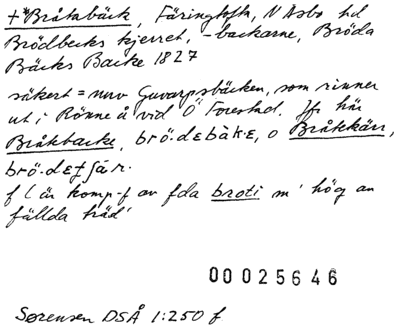 +*Bråtabäck, Färingtofta, N Åsbo hd
Brödbecks kjerret, -backarne, Bröda
Bäcks Backe 1827
säkert = nuv Guvarpsbäcken, som rinner
ut i Rönne å vid Ö Forestad. Jfr här
Bråkbacke, brö.dɛbàk·ɛ, o Bråkkärr,
f l är komp-f av fda broti m 'hög av
fällda träd'
00025646
Sørensen DSÅ 1:250 f